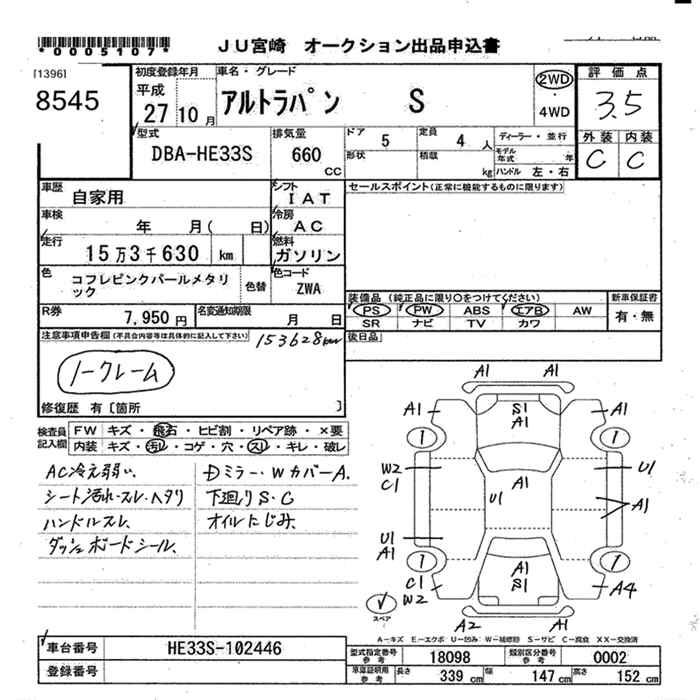 *0005107*
ＪＵ宮崎　オークション出品申込書
[1396]
8545
初度登録年月
平成
27 10 月
車名・グレード
アルトラパン　S
2WD
・
4WD
評価点
3.5
外装 内装
C C
型式
DBA-HE33S
排気量
660
CC
ドア 5
定員 4 人
形状
積載 kg
ディーラー・並行
モデル年式 年
ハンドル 左・右
車歴
自家用
シフト
IAT
セールスポイント(正常に機能するものに限ります)
車検
年　月(　日)
冷房
AC
走行
15万3千630 km
燃料
ガソリン
色
コフレピンクパールメタリック
色替
色コード
ZWA
R券
7,950円
名変通知期限
月　日
装備品 (純正品に限り○をつけてください)
PS PW ABS エアB AW
SR ナビ TV カワ
新車保証書
有・無
後日品
注意事項申告欄(不具合内容等は具体的に記入して下さい)
153628km
ノークレーム
修復歴 有〔箇所　〕
検査員記入欄
FW キズ・飛石・ヒビ割・リペア跡・×要
内装 キズ・汚レ・コゲ・穴・スレ・キレ・破レ
AC冷え弱い、
シート汚れ・スレ・ヘタリ
ハンドルスレ、
ダッシュボードシール、
Dミラー・WカバーA.
下廻りS・C
オイルにじみ、
A1 A1
A1 S1 A1 A1
1 1
W2 C1 A1 U1
U1 A1
U1 A1
1 A1 S1 1
C1 W2 A4
スペア
A2 A1
A-キズ E-エクボ U-凹み W-補修跡 S-サビ C-腐食 XX-交換済
車台番号
HE33S-102446
登録番号
型式指定番号
参考
18098
類別区分番号
参考
0002
車庫証明用
参考
長さ 339 cm
幅 147 cm
高さ 152 cm